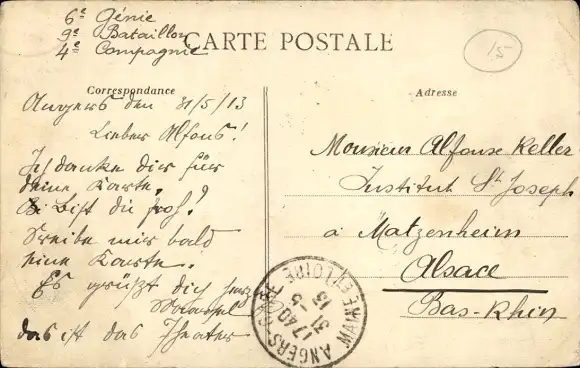 6e Génie
9e Bataillon
4e Compagnie
CARTE POSTALE
Correspondance
Adresse
15
Angers den 31/5/13
Lieber Alfons!
Ich danke dir für
deine Karte.
Bist du froh?
Schreibe mir bald
eine Karte.
Es grüßt dich herz
das ist das Theater
Monsieur Alfonse Keller
Institut St Joseph
à Matzenheim
Alsace
Bas-Rhin
ANGERS-GARE
17 40
31 -5
13
MAINE ET LOIRE